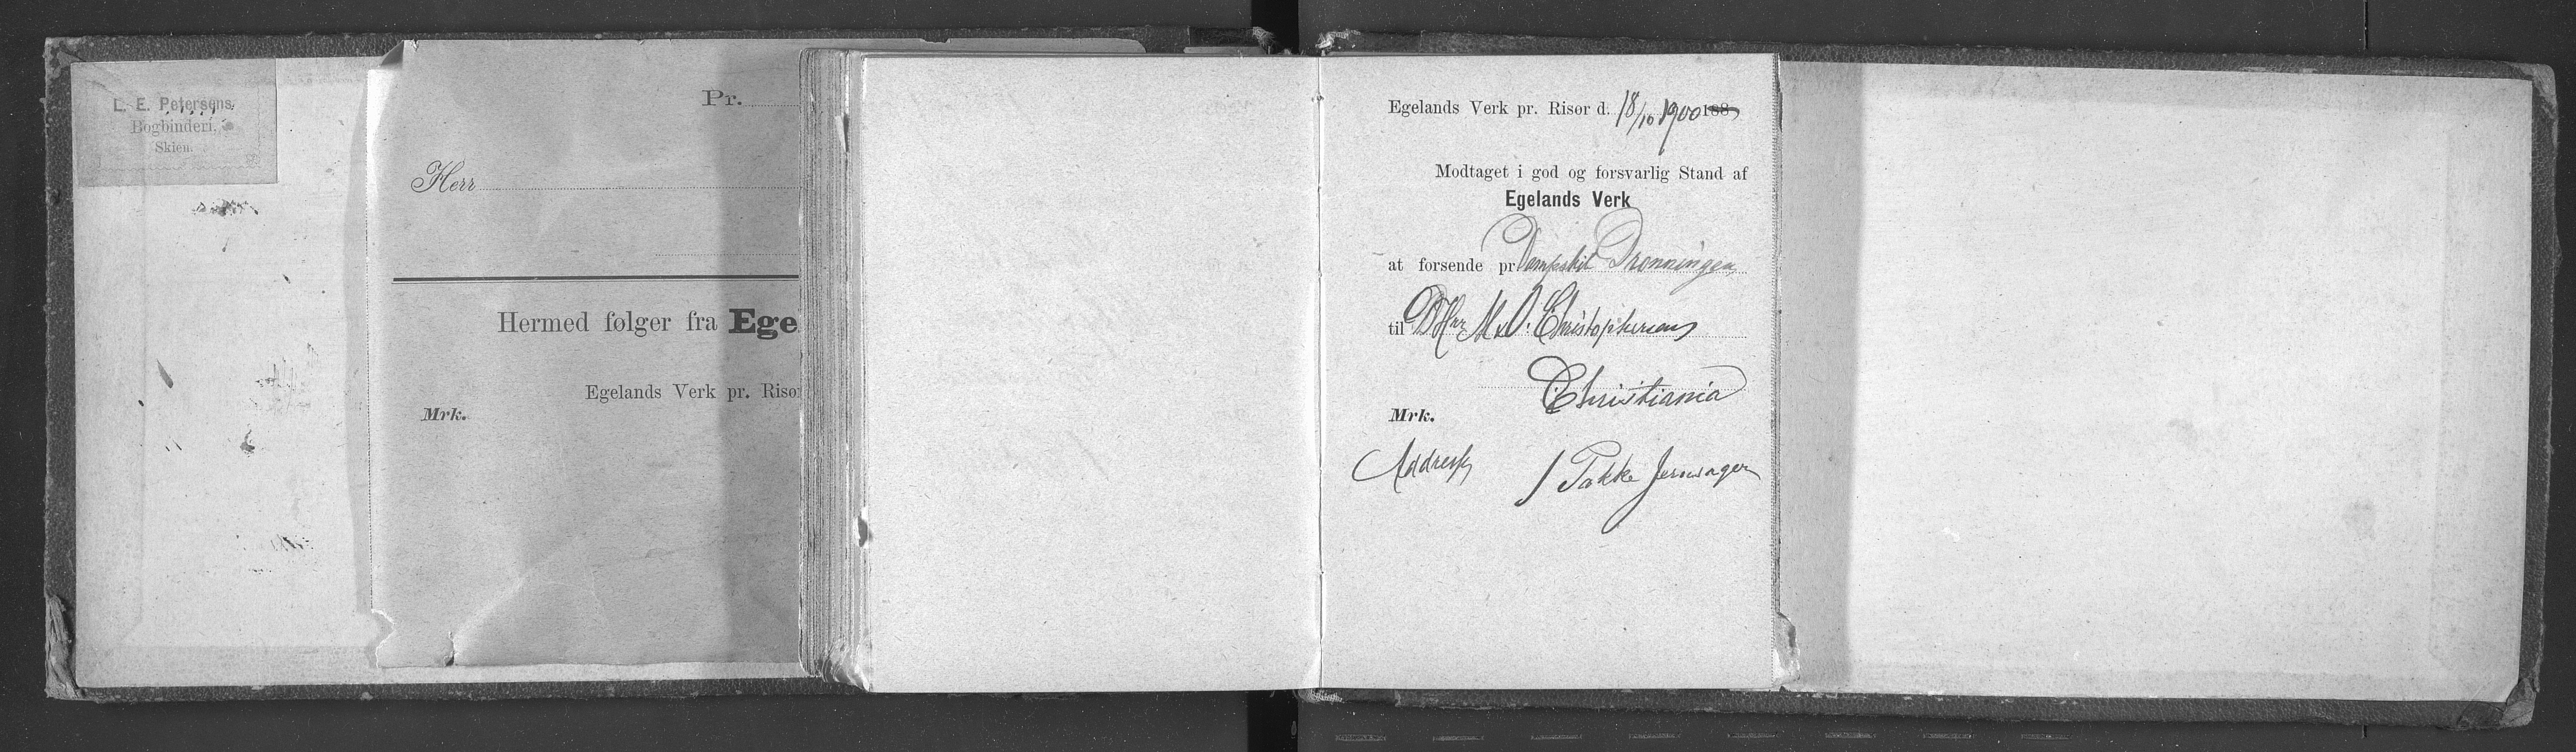 L. E. Petersens
Bogbinderi,
Skien.
Pr.
Herr
Hermed følger fra Ege
Egelands Verk pr. Riso
Mrk.
Egelands Verk pr. Risør d. 18/10 1900 188
Modtaget i god og forsvarlig Stand af
Egelands Verk
at forsende pr. Dampskib Dronningen
til DHrr M. O. Christophersen
Christiania
Mrk.
Address 1 Pakke Jernvager